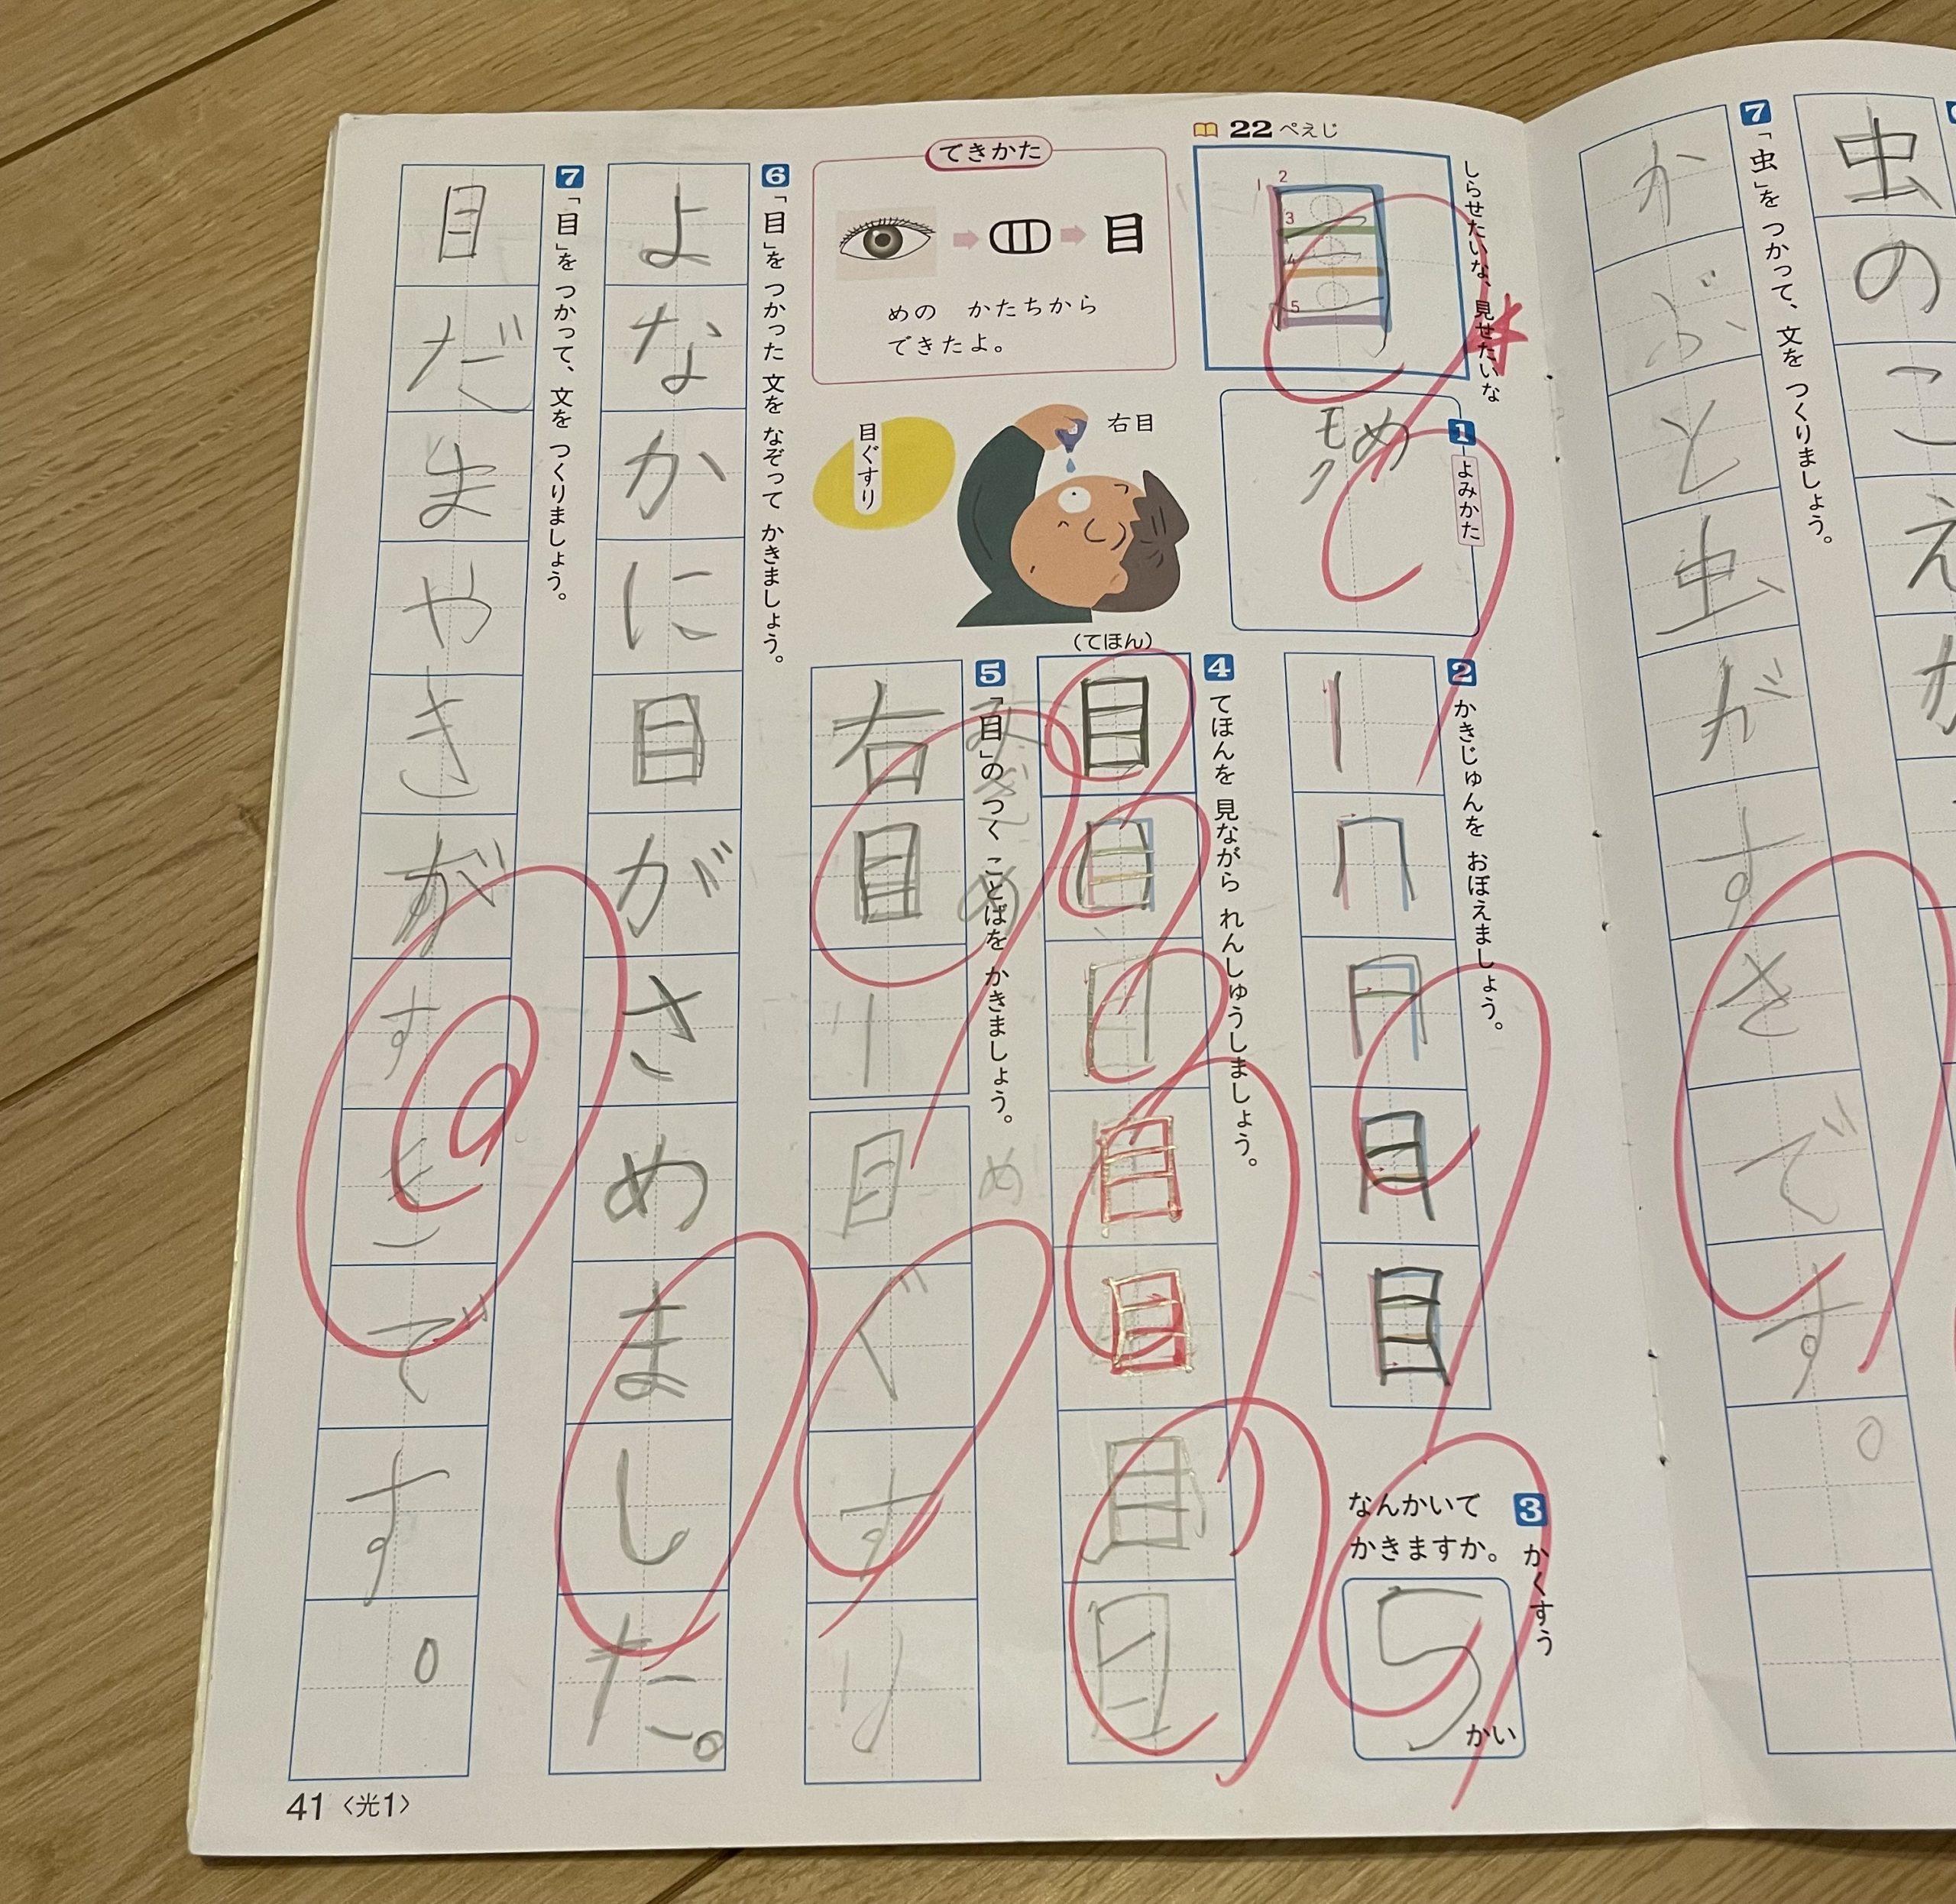 虫のこえか
7 「虫」を つかって、文を つくりましょう。
かぶと虫がすきです。
22 ぺえじ
しらせたいな、見せたいな
目
1 2 3 4 5
1 よみかた
め
モク
2 かきじゅんを おぼえましょう。
目
3 かくすう
なんかいで
かきますか。
5 かい
4 てほんを 見ながら れんしゅうしましょう。
(てほん)
目
目
目
目
目
目
目
できかた
目
めの かたちから
できたよ。
右目
目ぐすり
5 「目」の つく ことばを かきましょう。
右目
目ぐすり
め
6 「目」を つかった 文を なぞって かきましょう。
よなかに目がさめました。
7 「目」を つかって、文を つくりましょう。
目だまやきがすきです。
41 〈光1〉